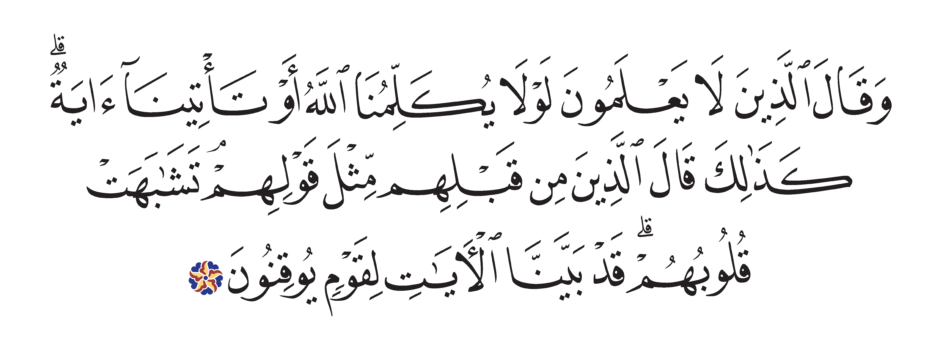 وَقَالَ ٱلَّذِينَ لَا يَعْلَمُونَ لَوْلَا يُكَلِّمُنَا ٱللَّهُ أَوْ تَأْتِينَآ ءَايَةٌۗ
كَذَٰلِكَ قَالَ ٱلَّذِينَ مِن قَبْلِهِم مِّثْلَ قَوْلِهِمْۘ تَشَٰبَهَتْ
قُلُوبُهُمْۗ قَدْ بَيَّنَّا ٱلْأٓيَٰتِ لِقَوْمٍ يُوقِنُونَ